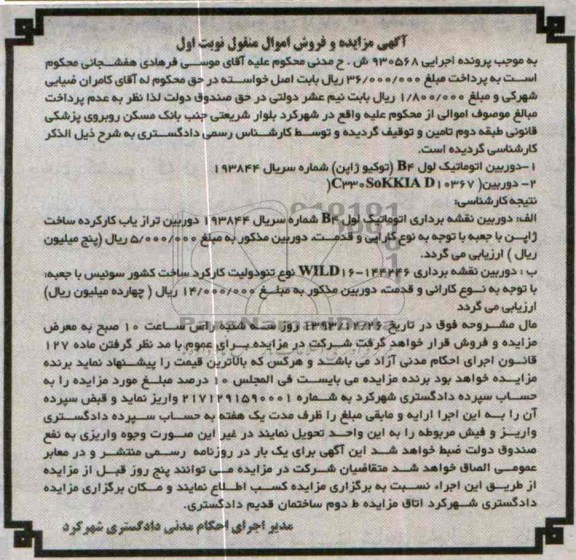 آگهی مزایده و فروش اموال منقول نوبت اول
به موجب پرونده اجرایی ۹۳۰۵۶۸ ش . ح مدنی محکوم علیه آقای موسی فرهادی هفشجانی محکوم
است به پرداخت مبلغ ۳۶/۰۰۰/۰۰۰ ریال بابت اصل خواسته در حق محکوم له آقای کامران ضیایی
شهرکی و مبلغ ۱/۸۰۰/۰۰۰ ریال بابت نیم عشر دولتی در حق صندوق دولت لذا نظر به عدم پرداخت
مبالغ موصوف اموالی از محکوم علیه واقع در شهرکرد بلوار شریعتی جنب بانک مسکن روبروی پزشکی
قانونی طبقه دوم تامین و توقیف گردیده و توسط کارشناس رسمی دادگستری به شرح ذیل الذکر
کارشناسی گردیده است.
۱-دوربین اتوماتیک لول B۴ (توکیو ژاپن) شماره سریال ۱۹۳۸۴۴
۲- دوربین( C۳۳۰SoKKIA D۱۰۳۶۷(
نتیجه کارشناسی:
الف: دوربین نقشه برداری اتوماتیک لول B۴ شماره سریال ۱۹۳۸۴۴ دوربین تراز یاب کارکرده ساخت
ژاپن با جعبه با توجه به نوع کارایی و قدمت، دوربین مذکور به مبلغ ۵/۰۰۰/۰۰۰ ریال (پنج میلیون
ریال ) ارزیابی می گردد.
ب : دوربین نقشه برداری WILD۱۶-۱۴۴۲۴۶ نوع تئودولیت کارکرد ساخت کشور سوئیس با جعبه:
با توجه به نوع کارائی و قدمت، دوربین مذکور به مبلغ ۱۴/۰۰۰/۰۰۰ ریال ( چهارده میلیون ریال)
ارزیابی می گردد
مال مشروحه فوق در تاریخ ۱۳۹۳/۱۲/۲۶ روز سه شنبه راس ساعت ۱۰ صبح به معرض
مزایده و فروش قرار خواهد گرفت شرکت در مزایده برای عموم با مد نظر گرفتن ماده ۱۲۷
قانون اجرای احکام مدنی آزاد می باشد و هرکس که بالاترین قیمت را پیشنهاد نماید برنده
مزایده خواهد بود برنده مزایده می بایست فی المجلس ۱۰ درصد مبلغ مورد مزایده را به
حساب سپرده دادگستری شهرکرد به شماره ۲۱۷۱۲۹۱۵۹۰۰۰۱ واریز نماید و قبض سپرده
آن را به این اجرا ارایه و مابقی مبلغ را ظرف مدت یک هفته به حساب سپرده دادگستری
واریز و فیش مربوطه را به این واحد تحویل نمایند در غیر این صورت وجوه واریزی به نفع
صندوق دولت ضبط خواهد شد این آگهی برای یک بار در روزنامه رسمی منتشر و در معابر
عمومی الصاق خواهد شد متقاضیان شرکت در مزایده می توانند پنج روز قبل از مزایده
از طریق این اجراء نسبت به برگزاری مزایده کسب اطلاع نمایند و مکان برگزاری مزایده
دادگستری شهرکرد اتاق مزایده ط دوم ساختمان قدیم دادگستری.
مدیر اجرای احکام مدنی دادگستری شهرکرد